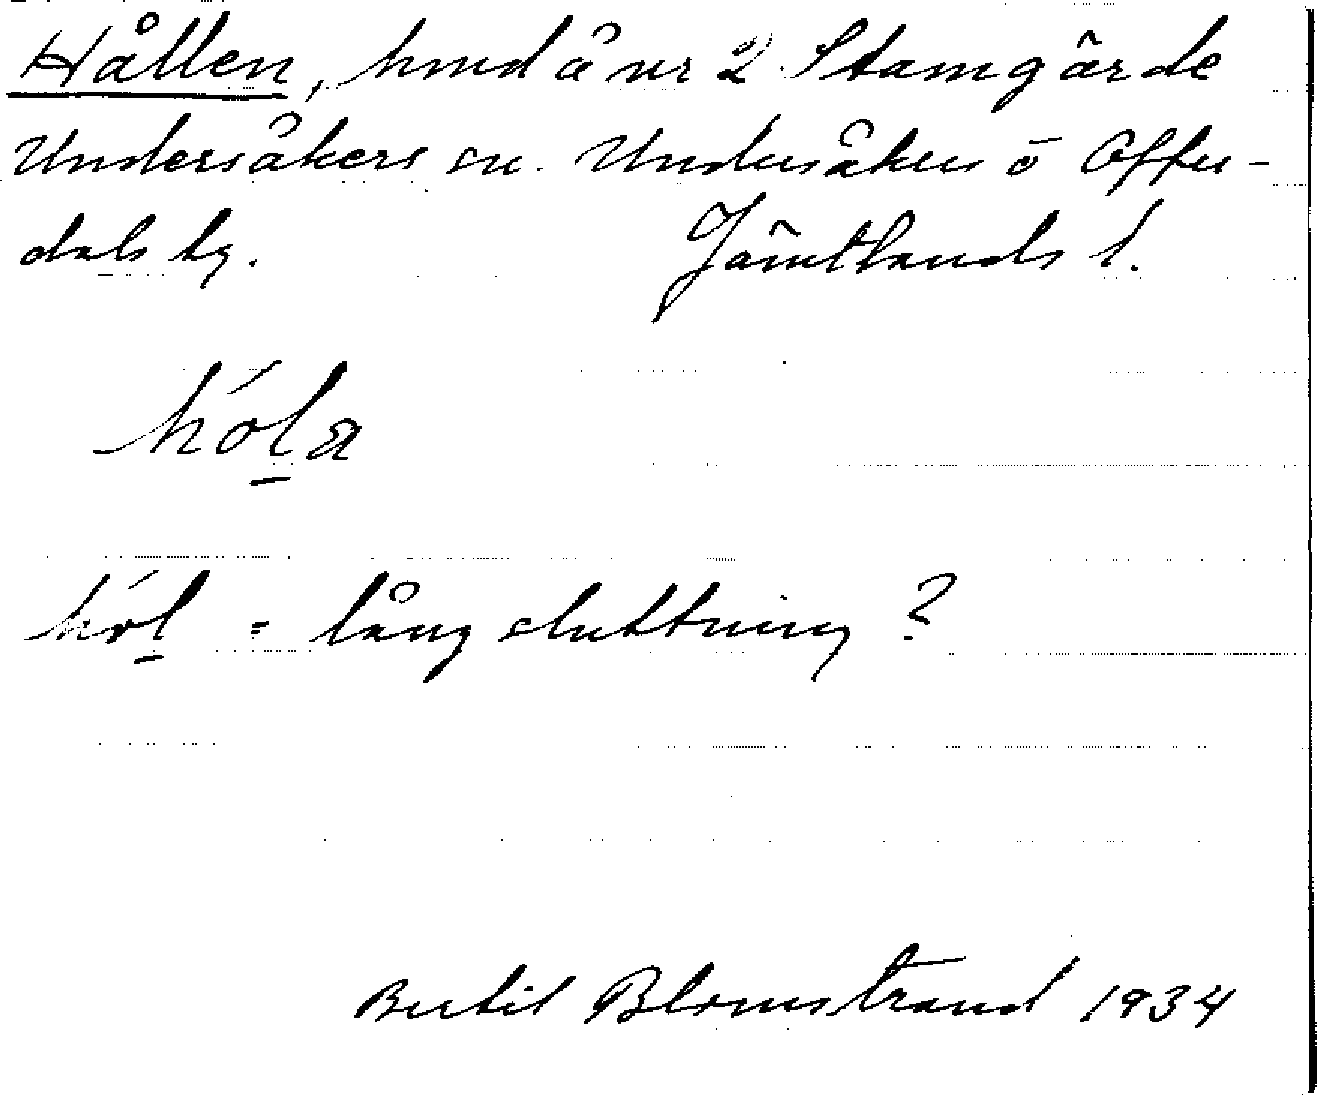 Hållen, hmd å nr 2 Stamgärde
Undersåkers sn. Undersåkers o Offer-
dals tg. Jämtlands l.
hóla
hól = lång sluttning ?
Bertil Blomstrand 1934